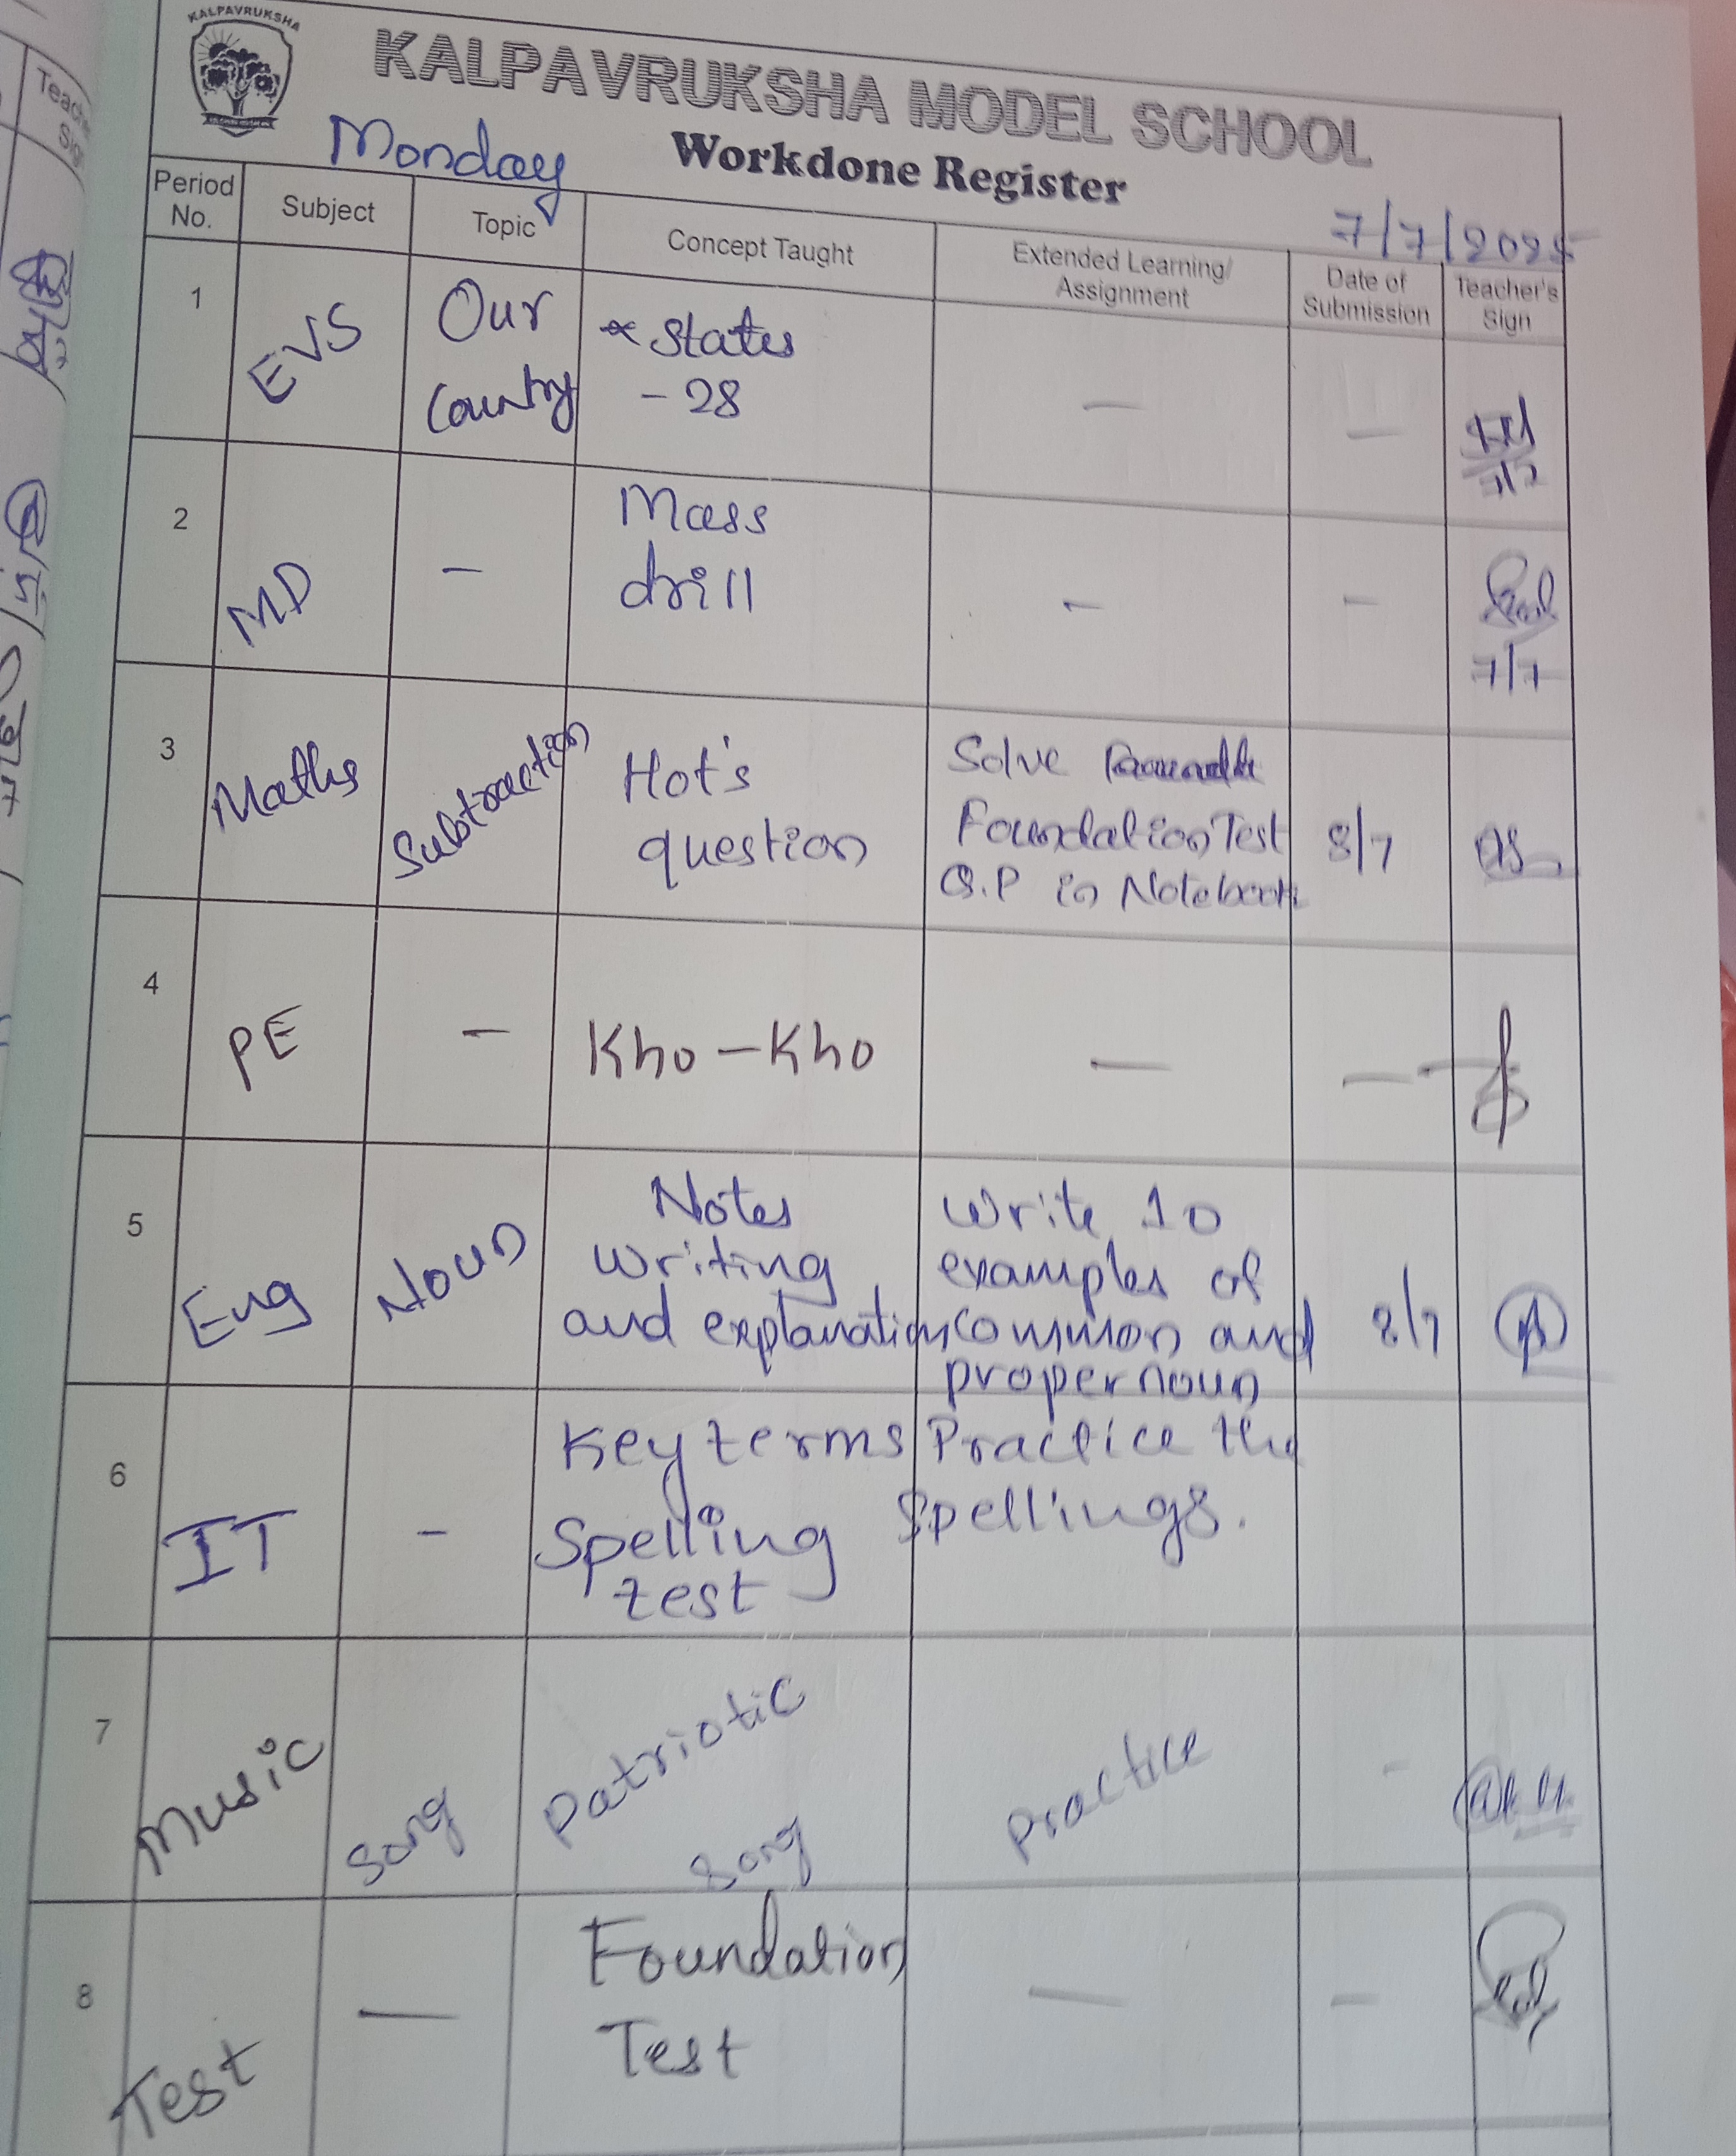 KALPAVRUKSHA
KALPAVRUKSHA MODEL SCHOOL
Monday
Workdone Register
7/7/2025
Period No.
Subject
Topic
Concept Taught
Extended Learning/
Assignment
Date of
Submission
Teacher's
Sign
1
EVS
Our
Country
* States
- 28
—
—
7/7
2
MD
—
Mass
drill
—
—
7/7
3
Maths
Subtraction
Hot's
question
Solve
Foundation Test
Q.P in Notebook
8/7
4
PE
—
Kho-Kho
—
—
5
Eng
Noun
Notes
writing
and explanation
Write 10
examples of
common and
proper noun
8/7
6
IT
-
Key terms
Spelling
test
Practice the
Spellings.
7
Music
Song
Patriotic
Song
Practice
-
8
Test
—
Foundation
Test
—
—